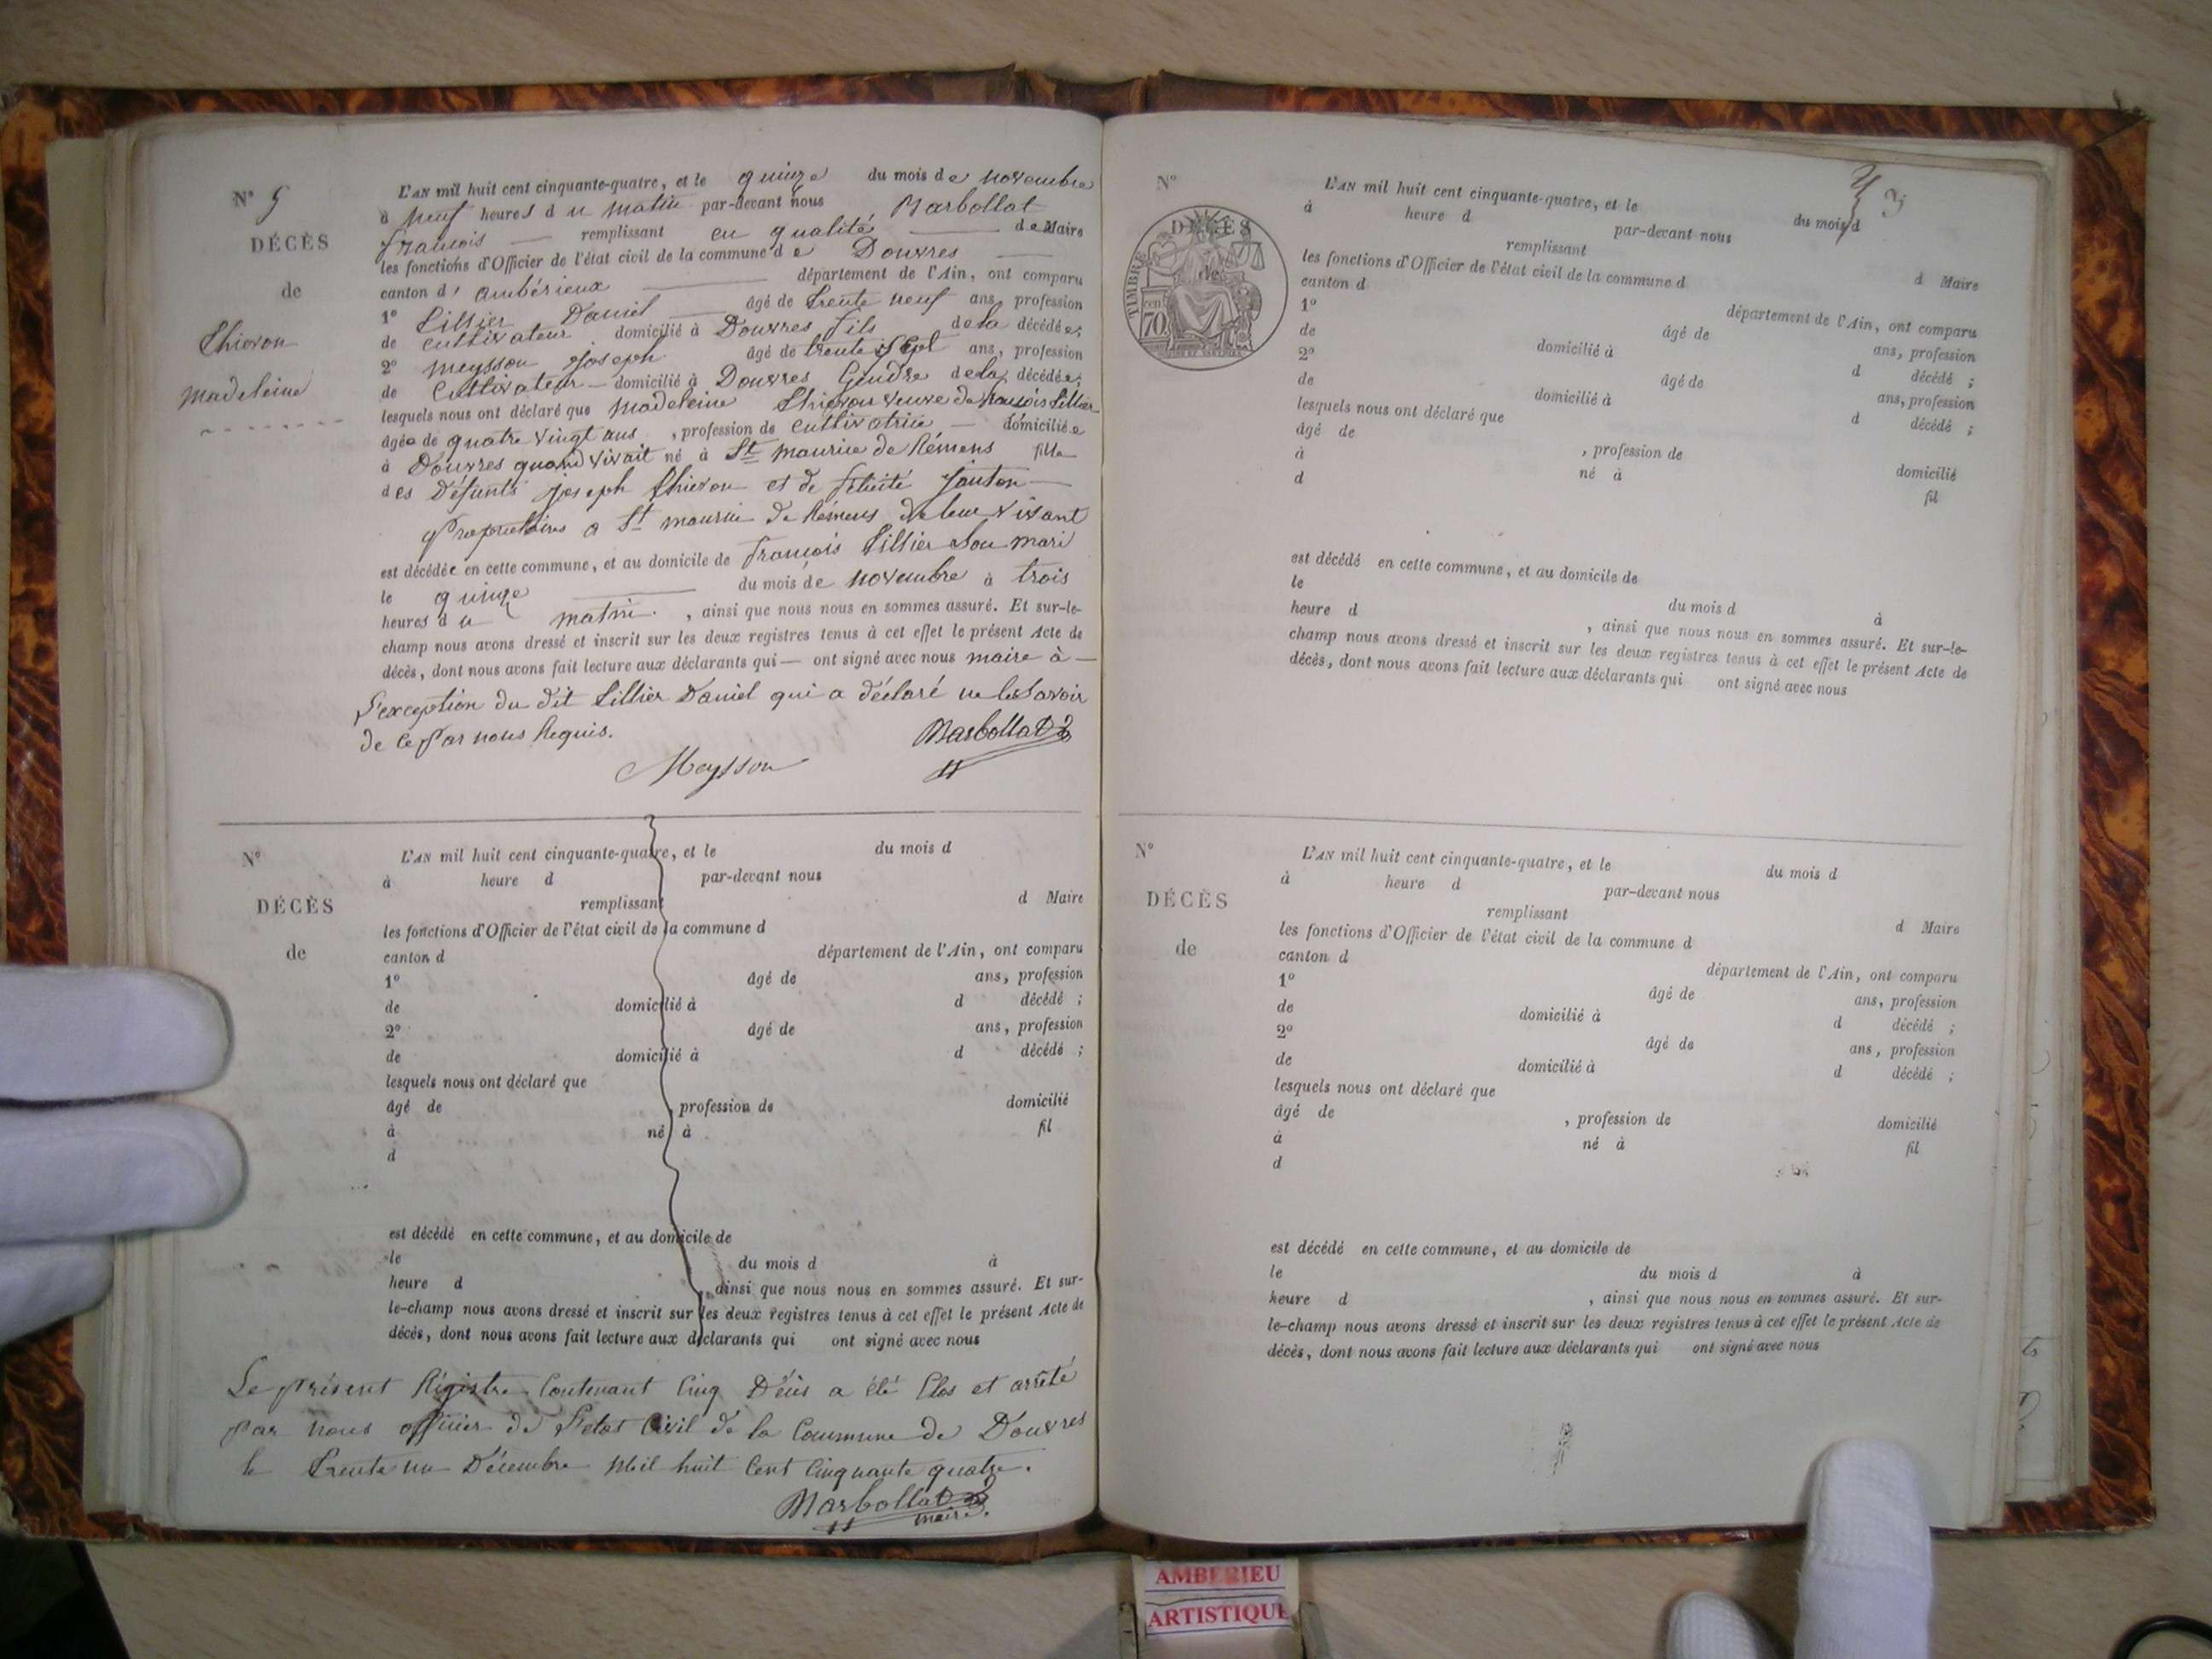 N° 5
DÉCÈS
de
Thieron
Madeleine
L'AN mil huit cent cinquante-quatre, et le quinze du mois de novembre
à neuf heures du matin par-devant nous Marbollat
françois remplissant en qualité de Maire
les fonctions d'Officier de l'état civil de la commune de Douvres
canton d'ambérieux département de l'Ain, ont comparu
1° Tillier Daniel âgé de trente neuf ans, profession
de cultivateur domicilié à Douvres fils de la décédée;
2° meysson joseph âgé de trente sept ans, profession
de Cultivateur domicilié à Douvres Gendre de la décédée;
lesquels nous ont déclaré que Madeleine Thieron veuve de françois Tillier
âgée de quatre vingt ans, profession de cultivatrice domiciliée
à Douvres quand vivait né à St maurice de Rémens fille
des Défunts joseph Thieron et de félicité
Propriétaires a St maurice de Rémens de leur vivant
est décédée en cette commune, et au domicile de françois Tillier Son mari
le quinze du mois de novembre à trois
heures du matin, ainsi que nous nous en sommes assuré. Et sur-le-
champ nous avons dressé et inscrit sur les deux registres tenus à cet effet le présent Acte de
décès, dont nous avons fait lecture aux déclarants qui ont signé avec nous maire à
l'exception du dit Tillier Daniel qui a déclaré ne le Savoir
de ce Par nous Requis.
Marbollat
Meysson
N°
DÉCÈS
de
L'AN mil huit cent cinquante-quatre, et le du mois d
à heure d par-devant nous
remplissant d Maire
les fonctions d'Officier de l'état civil de la commune d
canton d département de l'Ain, ont comparu
1° âgé de ans, profession
de domicilié à d décédé ;
2° âgé de ans, profession
de domicilié à d décédé ;
lesquels nous ont déclaré que
âgé de , profession de domicilié
à né à fil
d
est décédé en cette commune, et au domicile de
le du mois d à
heure d , ainsi que nous nous en sommes assuré. Et sur-
le-champ nous avons dressé et inscrit sur les deux registres tenus à cet effet le présent Acte de
décès, dont nous avons fait lecture aux déclarants qui ont signé avec nous
Le présent Régistre Contenant Cinq Décès a été Clos et arrêté
Par nous officier de l'etat Civil de la Commune de Douvres
le trente un Décembre Mil huit Cent Cinquante quatre.
Marbollat
maire.
N°
DÉCÈS
de
TIMBRE
70
L'AN mil huit cent cinquante-quatre, et le du mois d
à heure d par-devant nous
remplissant d Maire
les fonctions d'Officier de l'état civil de la commune d
canton d département de l'Ain, ont comparu
1° âgé de ans, profession
de domicilié à d décédé ;
2° âgé de ans, profession
de domicilié à d décédé ;
lesquels nous ont déclaré que
âgé de , profession de domicilié
à né à fil
d
est décédé en cette commune, et au domicile de
le du mois d à
heure d , ainsi que nous nous en sommes assuré. Et sur-le-
champ nous avons dressé et inscrit sur les deux registres tenus à cet effet le présent Acte de
décès, dont nous avons fait lecture aux déclarants qui ont signé avec nous
N°
DÉCÈS
de
L'AN mil huit cent cinquante-quatre, et le du mois d
à heure d par-devant nous
remplissant d Maire
les fonctions d'Officier de l'état civil de la commune d
canton d département de l'Ain, ont comparu
1° âgé de ans, profession
de domicilié à d décédé ;
2° âgé de ans, profession
de domicilié à d décédé ;
lesquels nous ont déclaré que
âgé de , profession de domicilié
à né à fil
d
est décédé en cette commune, et au domicile de
le du mois d à
heure d , ainsi que nous nous en sommes assuré. Et sur-
le-champ nous avons dressé et inscrit sur les deux registres tenus à cet effet le présent Acte de
décès, dont nous avons fait lecture aux déclarants qui ont signé avec nous
AMBERIEU
ARTISTIQUE